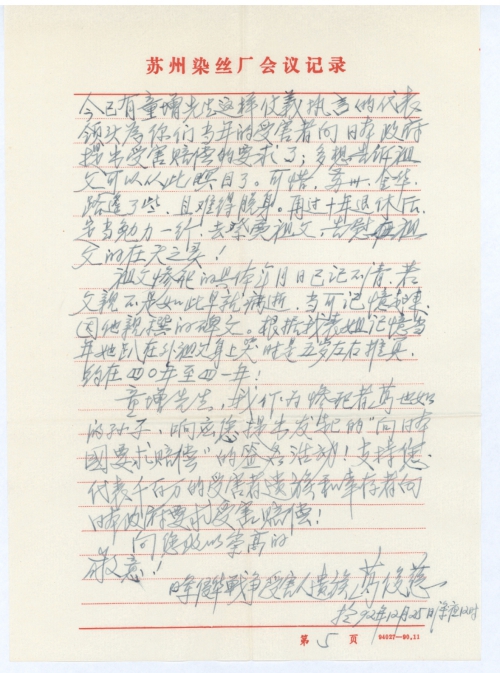 苏州染丝厂会议记录
今已有童增先生这样仗义执言的代表
领头为你们当年的受害者向日本政府
提出受害赔偿的要求了；多想告诉祖
父可以从此瞑目了。可惜，苏州、金华
路遥了些，且难得脱身。再过十年退休后，
定当勉力一行，去祭奠祖父，告慰祖
父的在天之灵！
祖父惨死的具体年月日已记不清，若
父亲不是如此早就病逝，当可记忆
因他亲撰的碑文。根据我表姐记忆当
年她趴在外祖父身上哭时是五岁左右推算，
约在四〇年至四一年！
童增先生，我作为惨死者
的孙子，响应您提出发起的“向日本
国要求赔偿”的签名活动！支持您
代表千百万的受害者遗族和幸存者向
日本政府要求受害赔偿！
向您致以崇高的
敬意！
日本侵华战争受害人遗族
于92年12月25日
第5页
94027—90.11